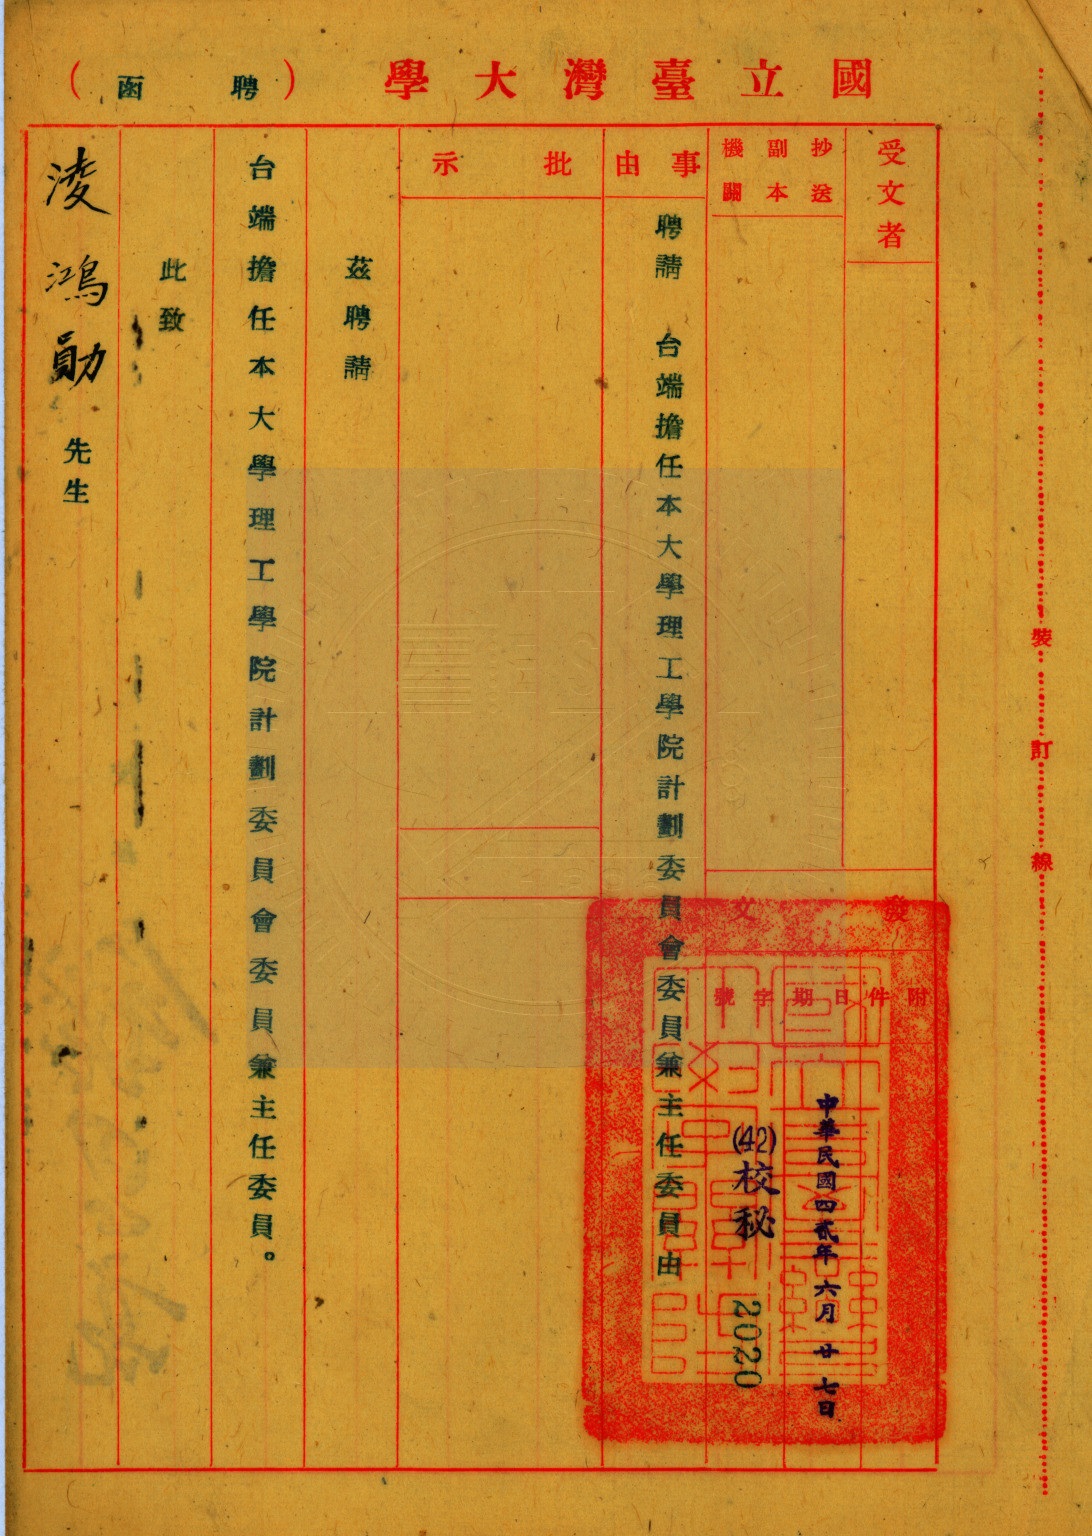 國立臺灣大學（聘函）
受文者
抄送副本機關
事由
聘請　台端擔任本大學理工學院計劃委員會委員兼主任委員由
批示
發文
附件日期字號
中華民國四貳年六月廿七日
(42)校秘 2020
茲聘請
台端擔任本大學理工學院計劃委員會委員兼主任委員。
此致
淩鴻勛先生
裝訂線